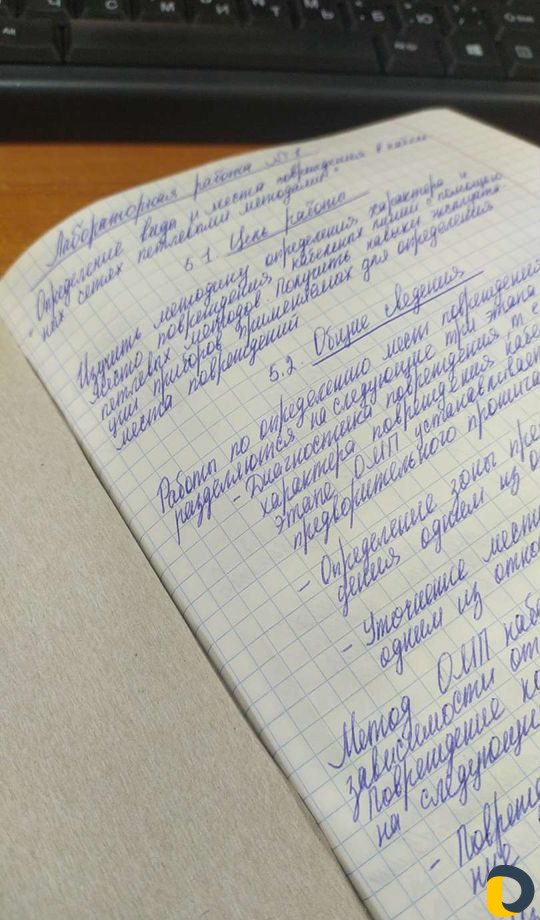 Лабораторная работа №
"Определение вида и места повреждения в кабель
ных сетях петлевыми методами"
5.1. Цель работы
Изучить методику определения характера и
место повреждения кабельных линий с помощью
петлевых методов. Получить навыки эксплуата
ции приборов применяемых для определения
места повреждений
5.2. Общие сведения
Работы по определению мест повреждений
разделяются на следующие три этапа
- Диагностика повреждения т.
характера повреждения кабе
этапе ОМП устанавливает
предворительного прожига
- Определение зоны пре
дения одним из
- Уточнение мест
одним из отно
Метод ОМП каб
зависимости от
Повреждение ка
на следующие
- Повреж
ние